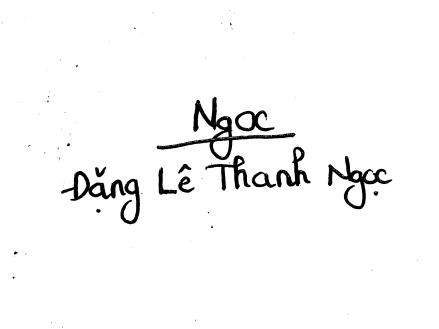 Ngoc
Đặng Lê Thanh Ngọc